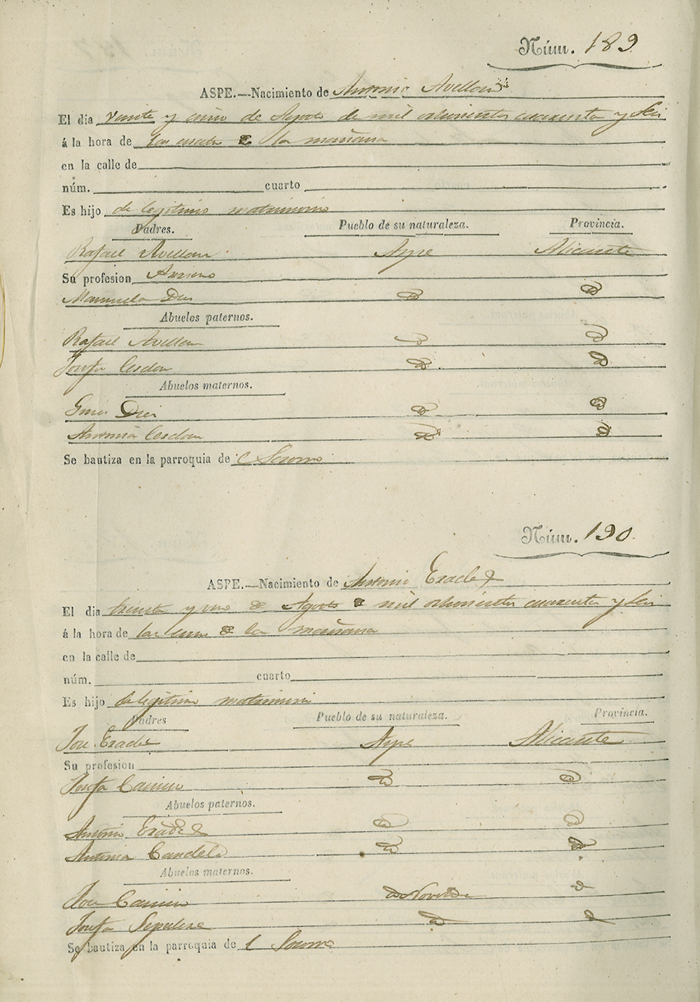 Núm. 189
ASPE.—Nacimiento de Antonio Avellan
El dia veinte y cinco de Agosto de mil ochocientos cuarenta y seis
á la hora de las cuatro de la mañana
en la calle de
núm. cuarto
Es hijo de legitimo matrimonio
Padres. Pueblo de su naturaleza. Provincia.
Rafael Avellan Aspe Alicante
Su profesion Arriero
Manuela
Abuelos paternos.
Rafael Avellan
Josefa Cerdan
Abuelos maternos.
Antonia Cerdan
Se bautiza en la parroquia de el Socorro
Núm. 190.
ASPE.—Nacimiento de Antonio
El dia treinta y uno de Agosto de mil ochocientos cuarenta y seis
á la hora de las cinco de la mañana
en la calle de
núm. cuarto
Es hijo de legitimo matrimonio
Padres Pueblo de su naturaleza. Provincia.
Jose Aspe Alicante
Su profesion
Josefa
Abuelos paternos.
Antonio
Antonia Candela
Abuelos maternos.
Jose Novelda
Josefa
Se bautiza en la parroquia de el Socorro